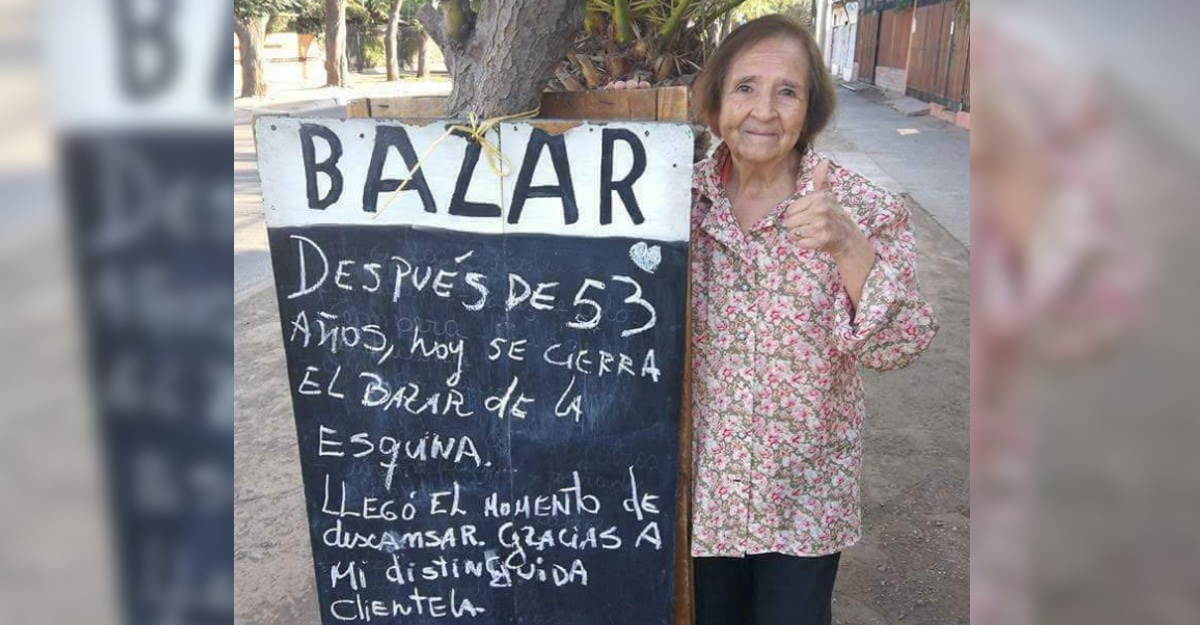 BAZAR
DESPUÉS DE 53
AÑOS, hoy SE CIERRA
EL BAZAR de LA
ESQUINA.
LLEGÓ EL MOMENTO de
descANSAR. GRACIAS A
Mi distinguiDA
CLientela